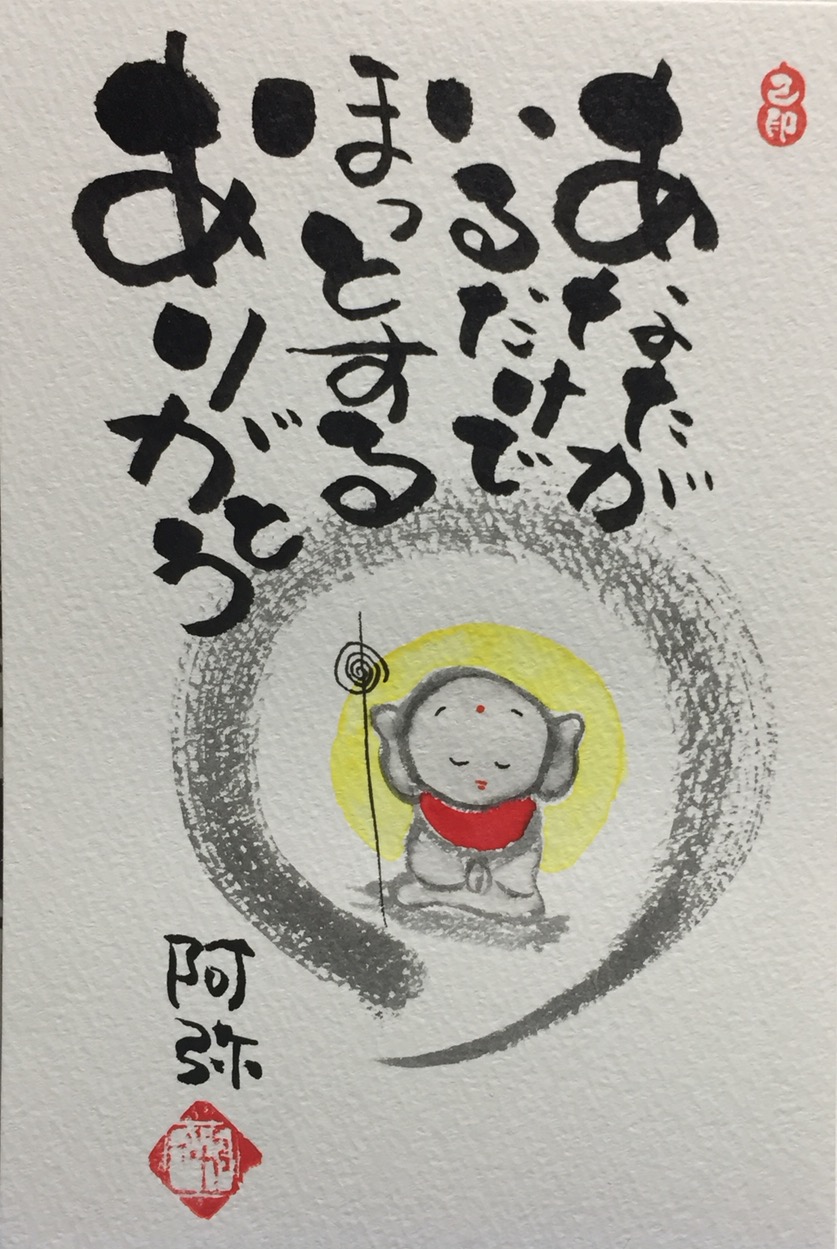 あなたが
いるだけで
ほっとする
ありがとう
阿弥